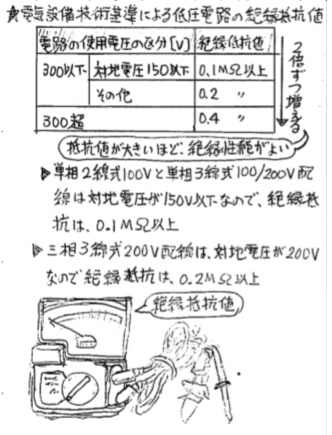 ★電気設備技術基準による低圧電路の絶縁抵抗値
電路の使用電圧の区分[V] 絶縁抵抗値
300以下 対地電圧150以下 0.1MΩ以上
その他 0.2 〃
300超 0.4 〃
2倍ずつ増える
抵抗値が大きいほど、絶縁性能がよい
▶単相2線式100Vと単相3線式100/200V配
線は対地電圧が150V以下なので、絶縁抵
抗は、0.1MΩ以上
▶三相3線式200V配線は、対地電圧が200V
なので絶縁抵抗は、0.2MΩ以上
絶縁抵抗値